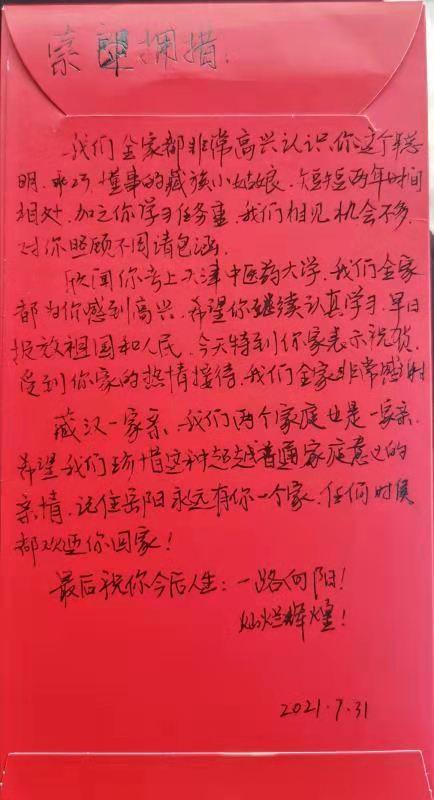 拥措：
我们全家都非常高兴认识你这个聪
明、乖巧、懂事的藏族小姑娘。短短两年时间
相处，加之你学习任务重，我们相见机会不多，
对你照顾不周请包涵。
欣闻你考上天津中医药大学，我们全家
都为你感到高兴。希望你继续认真学习，早日
报效祖国和人民。今天特到你家表示祝贺，
受到你家的热情接待，我们全家非常感谢！
藏汉一家亲，我们两个家庭也是一家亲。
希望我们珍惜这种超越普通家庭意义的
亲情，记住岳阳永远有你一个家，任何时候
都欢迎你回家！
最后祝你今后人生：一路向阳！
灿烂辉煌！
2021.7.31